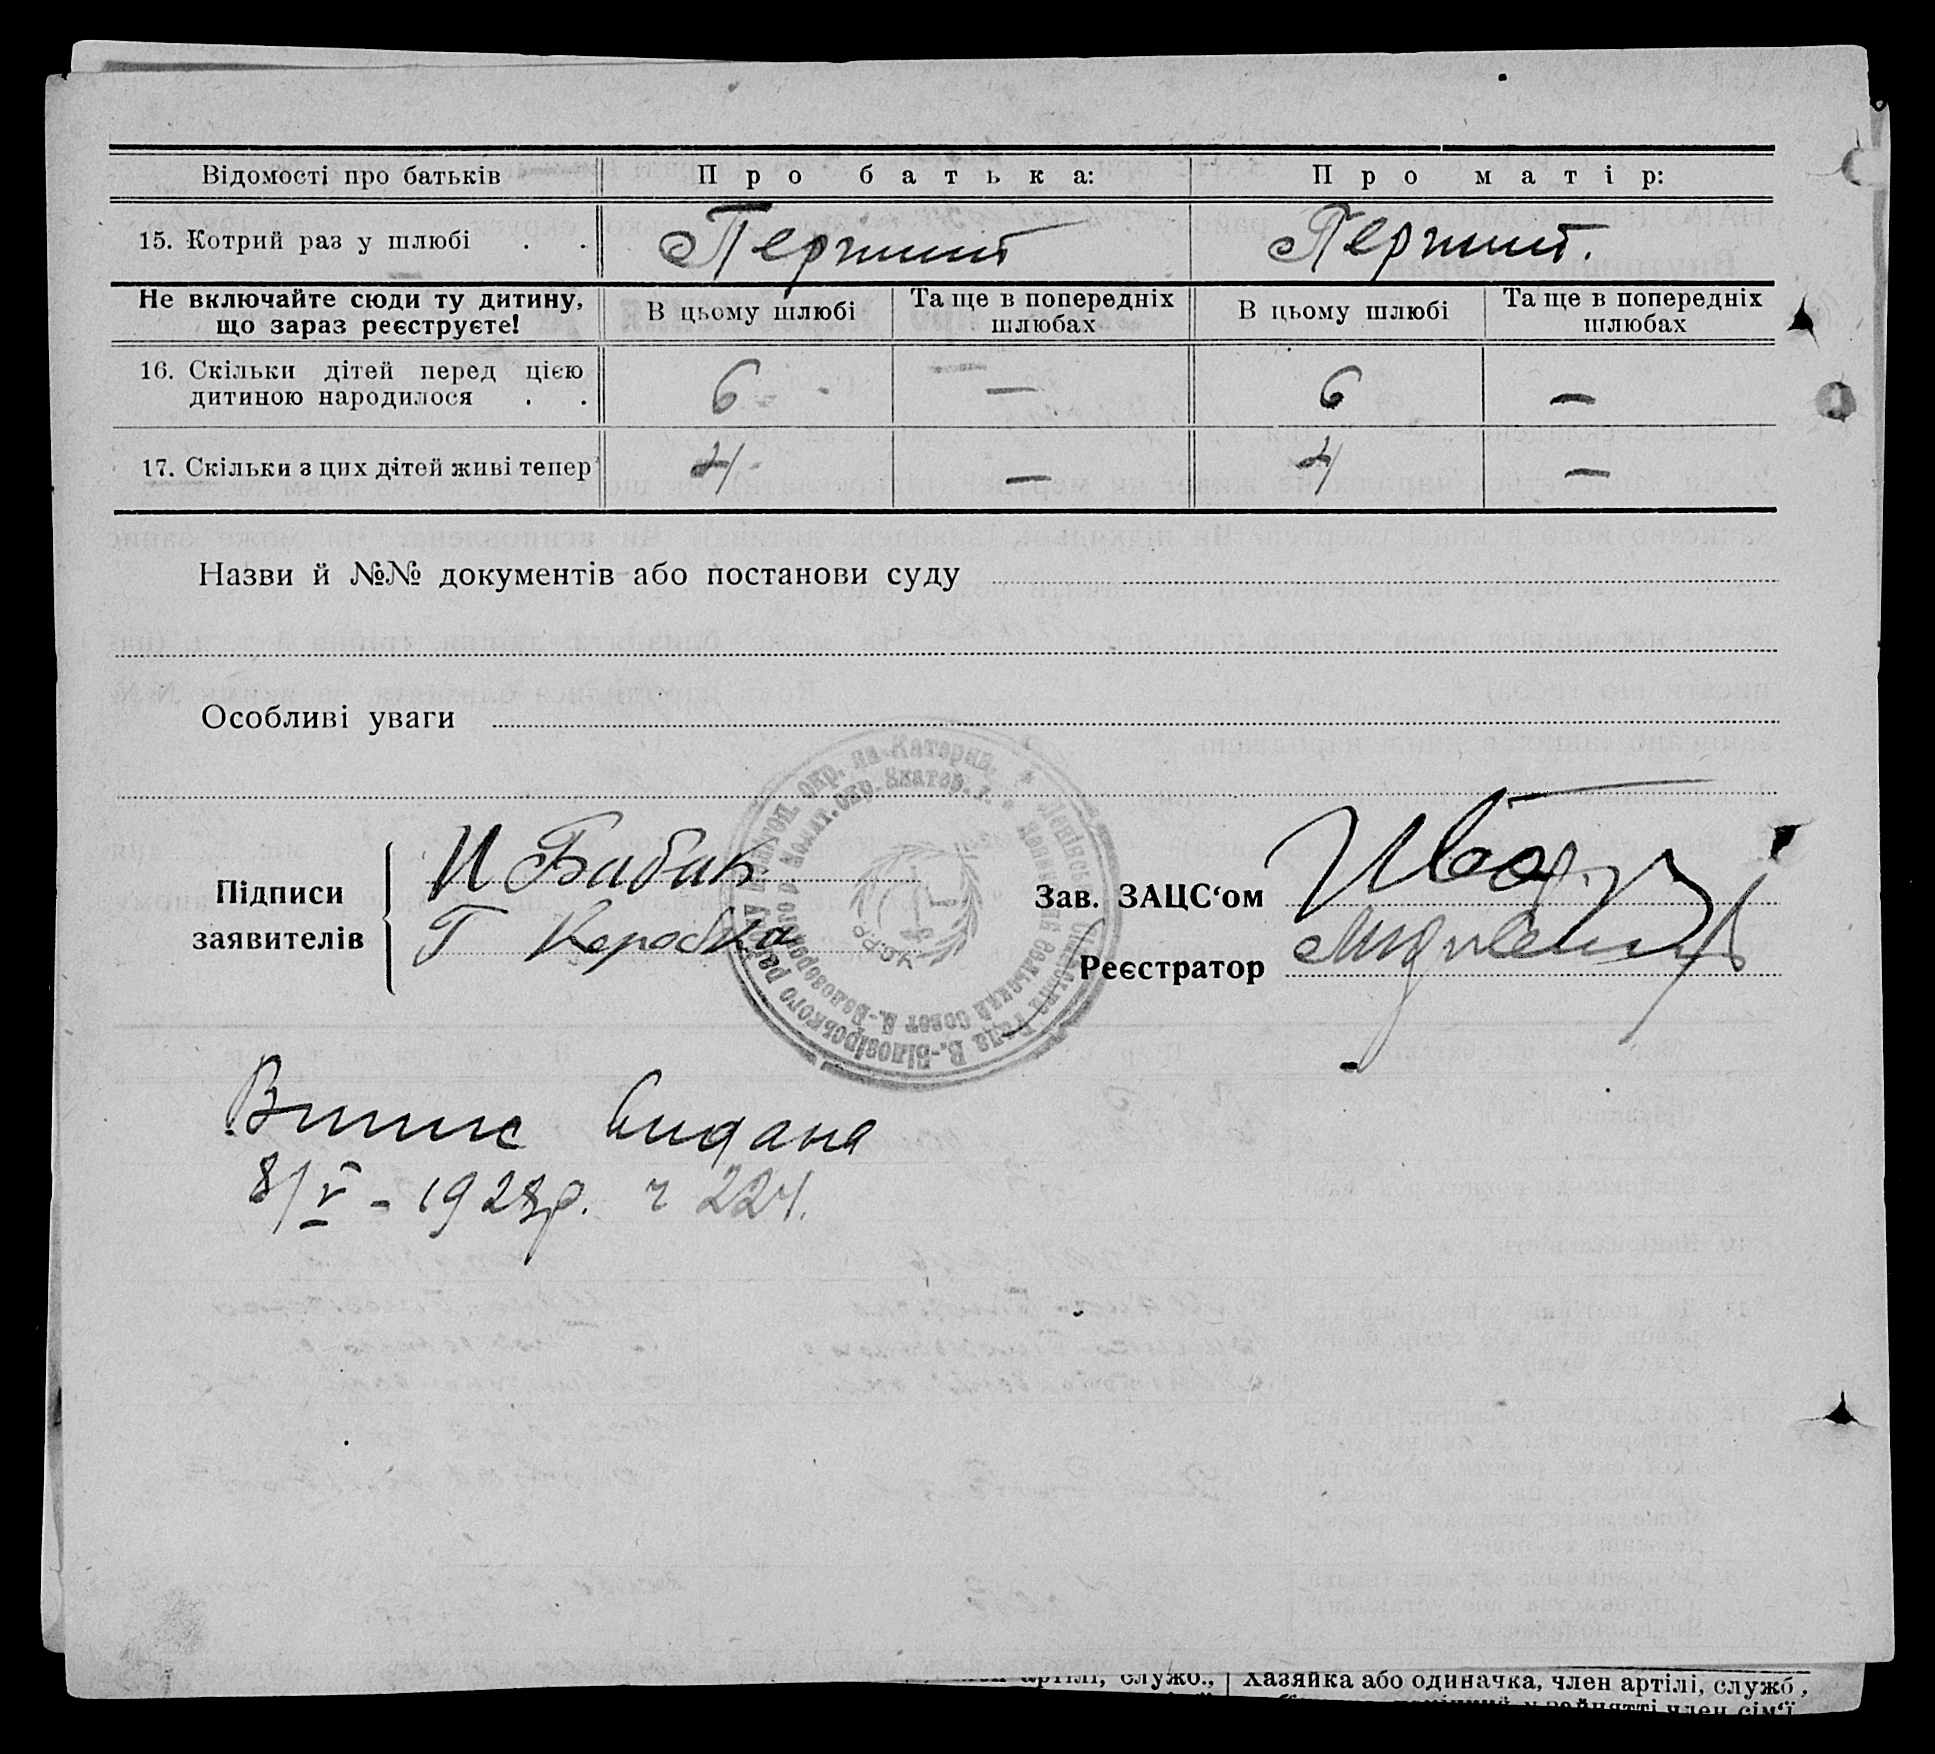 Відомості про батьків Про батька: Про матір:
15. Котрий раз у шлюбі . . Перший Перший.
Не включайте сюди ту дитину, що зараз реєструєте! В цьому шлюбі Та ще в попередніх шлюбах В цьому шлюбі Та ще в попередніх шлюбах
16. Скільки дітей перед цією
дитиною народилося . . 6 — 6 —
17. Скільки з цих дітей живі тепер 4 — 4 —
Назви й №№ документів або постанови суду
Особливі уваги
Підписи заявителів
И Бабак
Г Коробка
Зав. ЗАЦС‘ом
Реєстратор
Випис видана
8/V - 1928р. ч 224.
артілі, служб., Хазяйка або одиначка, член артілі, служб,